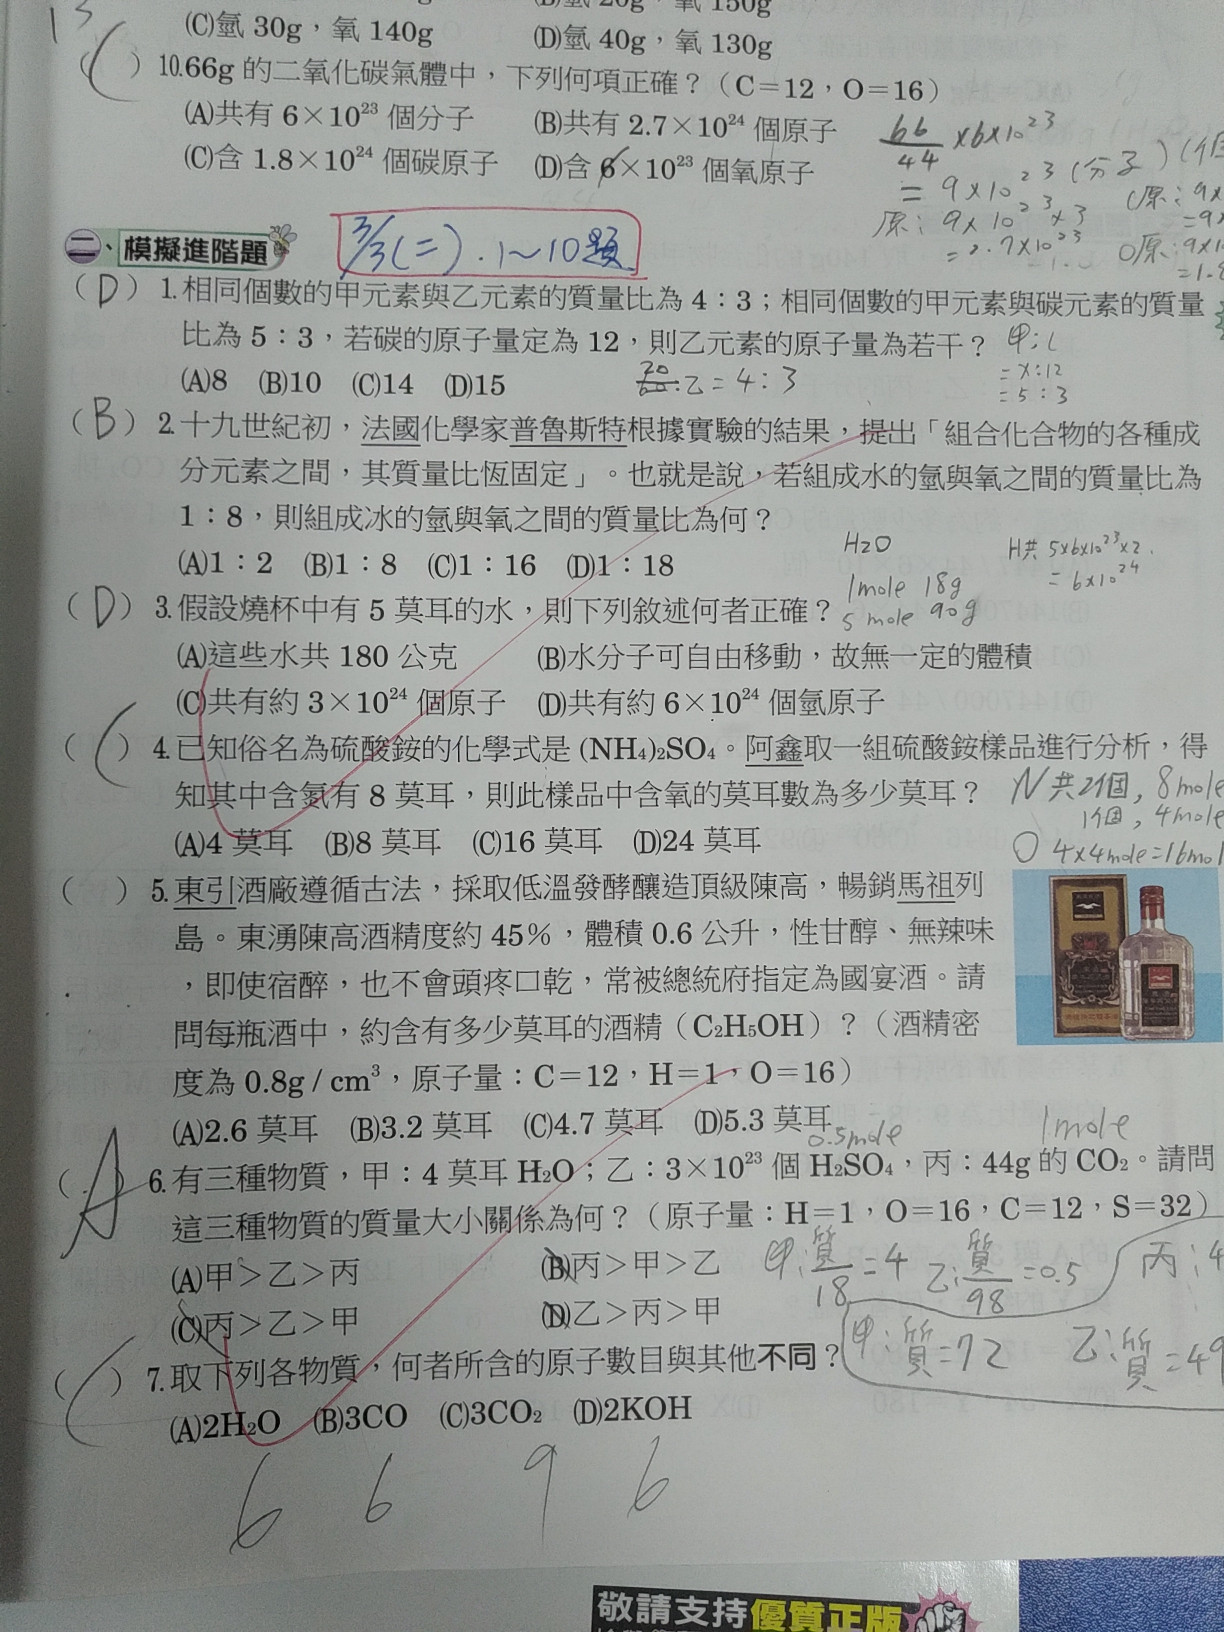 (C)氫 30g，氧 140g (D)氫 40g，氧 130g
(C) 10.66g 的二氧化碳氣體中，下列何項正確？（C＝12，O＝16）
(A)共有 6×10²³ 個分子 (B)共有 2.7×10²⁴ 個原子
(C)含 1.8×10²⁴ 個碳原子 (D)含 6×10²³ 個氧原子
66/44 ×6×10²³
= 9×10²³(分子)
原：9×10²³×3
二、模擬進階題
3/3(二).1～10題
(D) 1.相同個數的甲元素與乙元素的質量比為 4：3；相同個數的甲元素與碳元素的質量
比為 5：3，若碳的原子量定為 12，則乙元素的原子量為若干？
(A)8 (B)10 (C)14 (D)15
乙=4:3
=x:12
=5:3
(B) 2.十九世紀初，法國化學家普魯斯特根據實驗的結果，提出「組合化合物的各種成
分元素之間，其質量比恆固定」。也就是說，若組成水的氫與氧之間的質量比為
1：8，則組成冰的氫與氧之間的質量比為何？
(A)1：2 (B)1：8 (C)1：16 (D)1：18
H2O
1mole 18g
5 mole 90g
H共 5×6×10²³×2
=6×10²⁴
(D) 3.假設燒杯中有 5 莫耳的水，則下列敘述何者正確？
(A)這些水共 180 公克 (B)水分子可自由移動，故無一定的體積
(C)共有約 3×10²⁴ 個原子 (D)共有約 6×10²⁴ 個氫原子
(C) 4.已知俗名為硫酸銨的化學式是 (NH₄)₂SO₄。阿鑫取一組硫酸銨樣品進行分析，得
知其中含氮有 8 莫耳，則此樣品中含氧的莫耳數為多少莫耳？
(A)4 莫耳 (B)8 莫耳 (C)16 莫耳 (D)24 莫耳
N共2個, 8mole
1個, 4mole
O 4×4mole=16mol
( ) 5.東引酒廠遵循古法，採取低溫發酵釀造頂級陳高，暢銷馬祖列
島。東湧陳高酒精度約 45%，體積 0.6 公升，性甘醇、無辣味
，即使宿醉，也不會頭疼口乾，常被總統府指定為國宴酒。請
問每瓶酒中，約含有多少莫耳的酒精（C₂H₅OH）？（酒精密
度為 0.8g / cm³，原子量：C＝12，H＝1，O＝16）
(A)2.6 莫耳 (B)3.2 莫耳 (C)4.7 莫耳 (D)5.3 莫耳
0.5mole 1mole
(A) 6.有三種物質，甲：4 莫耳 H₂O；乙：3×10²³ 個 H₂SO₄，丙：44g 的 CO₂。請問
這三種物質的質量大小關係為何？（原子量：H＝1，O＝16，C＝12，S＝32）
(A)甲＞乙＞丙 (B)丙＞甲＞乙
(C)丙＞乙＞甲 (D)乙＞丙＞甲
甲:質/18=4 乙:質/98=0.5 丙:4
甲:質=72 乙:質=49
(C) 7.取下列各物質，何者所含的原子數目與其他不同？
(A)2H₂O (B)3CO (C)3CO₂ (D)2KOH
6 6 9 6
敬請支持優質正版